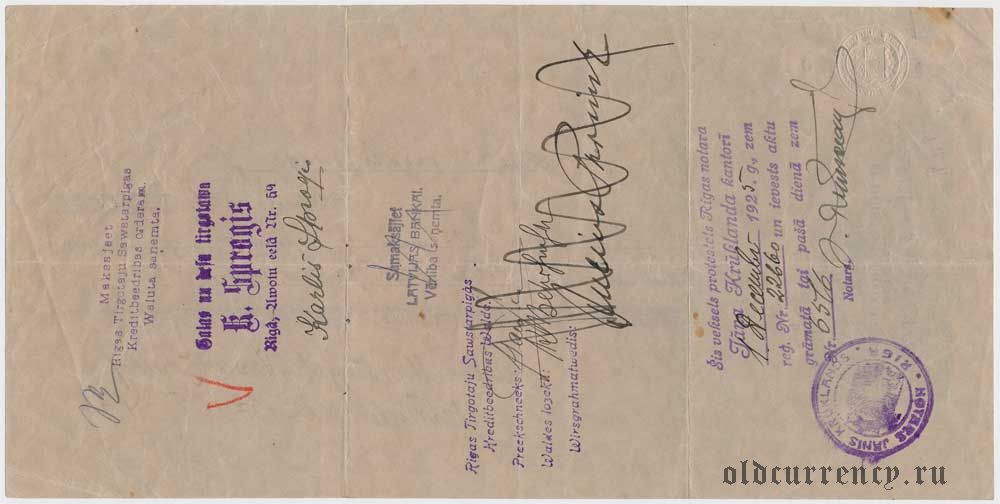 Maksajeet
Rigas Tirgotaju Sawstarpigas
Kreditbeedribas orderam.
Waluta sanemta.
Galas un desu tirgotawa
K. Sprogis
Rigā, Awotu eelā Nr. 59
Karlis Sprogis
Samaksājiet
LATVIJAS BANKAI.
Vērtība saņemta.
Rigas Tirgotaju Sawstarpigās
Kreditbeedribas Walde:
Preekschneeks:
Waldes lozekļi:
Wirsgrahmatwedis:
Šis veksels protestēts Rīgas notara
Jāņa Krūklanda kantorī
1925. g., zem
reg. Nr. 22660 un ievests aktu
grāmatā tai pašā dienā zem
Nr.
Notars:
NOTARS JANIS KRUKLANDS
RIGA
oldcurrency.ru